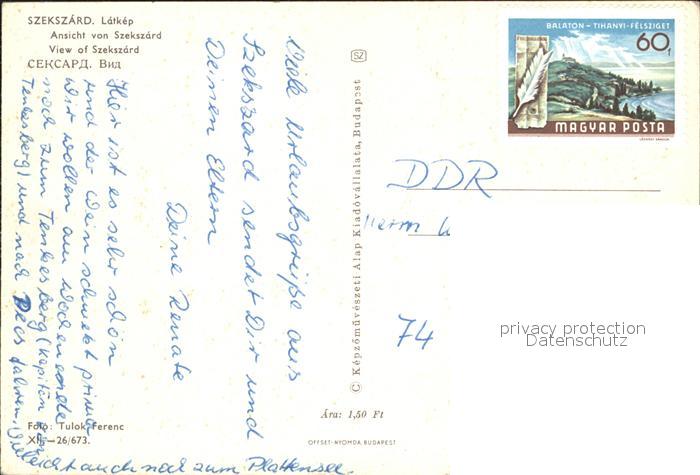 SZEKSZÁRD. Látkép
Ansicht von Szekszárd
View of Szekszárd
СЕКСАРД. Вид
Viele Urlaubsgrüße aus
Szekszard sendet Dir und
Deinen Eltern
Deine Renate
Hier ist es sehr schön
und der Wein schmeckt prima
Wir wollen am Wochenende
noch zum Tenkesberg (Kapitän
Tenkesberg) und nach Pecs fahren,
Vielleicht auch nach zum Plattensee.
Foto: Tulok Ferenc
XII.—26/673.
SZ
© Képzőművészeti Alap Kiadóvállalata, Budapest
Ára: 1,50 Ft
OFFSET-NYOMDA BUDAPEST
BALATON - TIHANYI-FÉLSZIGET
60f
MAGYAR POSTA
DDR
Herrn
74
privacy protection
Datenschutz